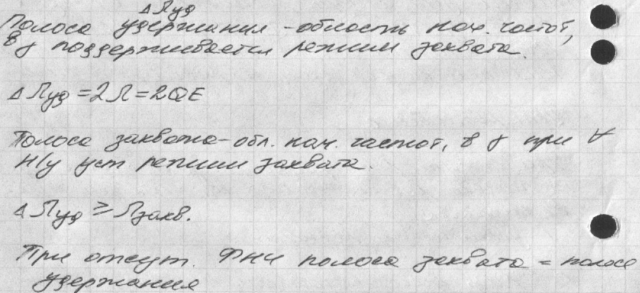 ΔΩуд
Полоса удержания - область нач. частот,
в γ поддерживается режим захвата.
ΔΩуд = 2Ω = 2QE
Полоса захвата - обл. нач. частот, в γ при ∀
н/у уст режим захвата.
ΔΩуд ≥ Ωзахв.
При отсут. ФНЧ полоса захвата = полосе
удержания